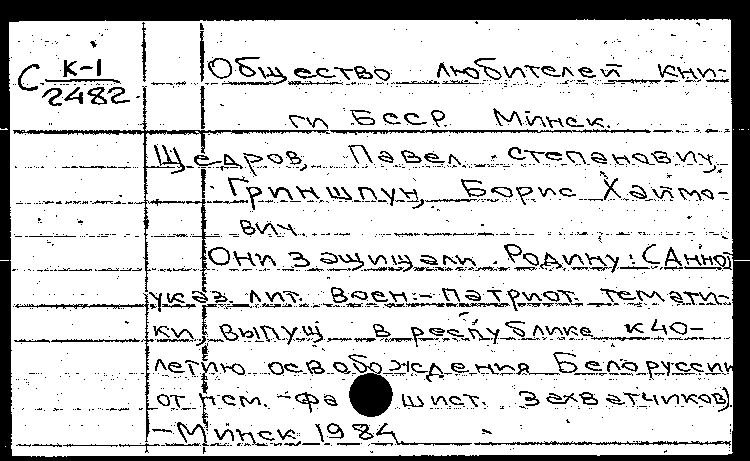 С К-1
2482
Общество любителей кни-
ги БССР. Минск.
Щедров, Павел Степанович,
Гриншпун, Борис Хаимо-
вич
Они защищали Родину: (Аннот.
указ. лит. воен.-патриот. темати-
ки, выпущ. в республике к 40-
летию освобождения Белоруссии
от нем.-фашист. захватчиков)
-Минск, 1984